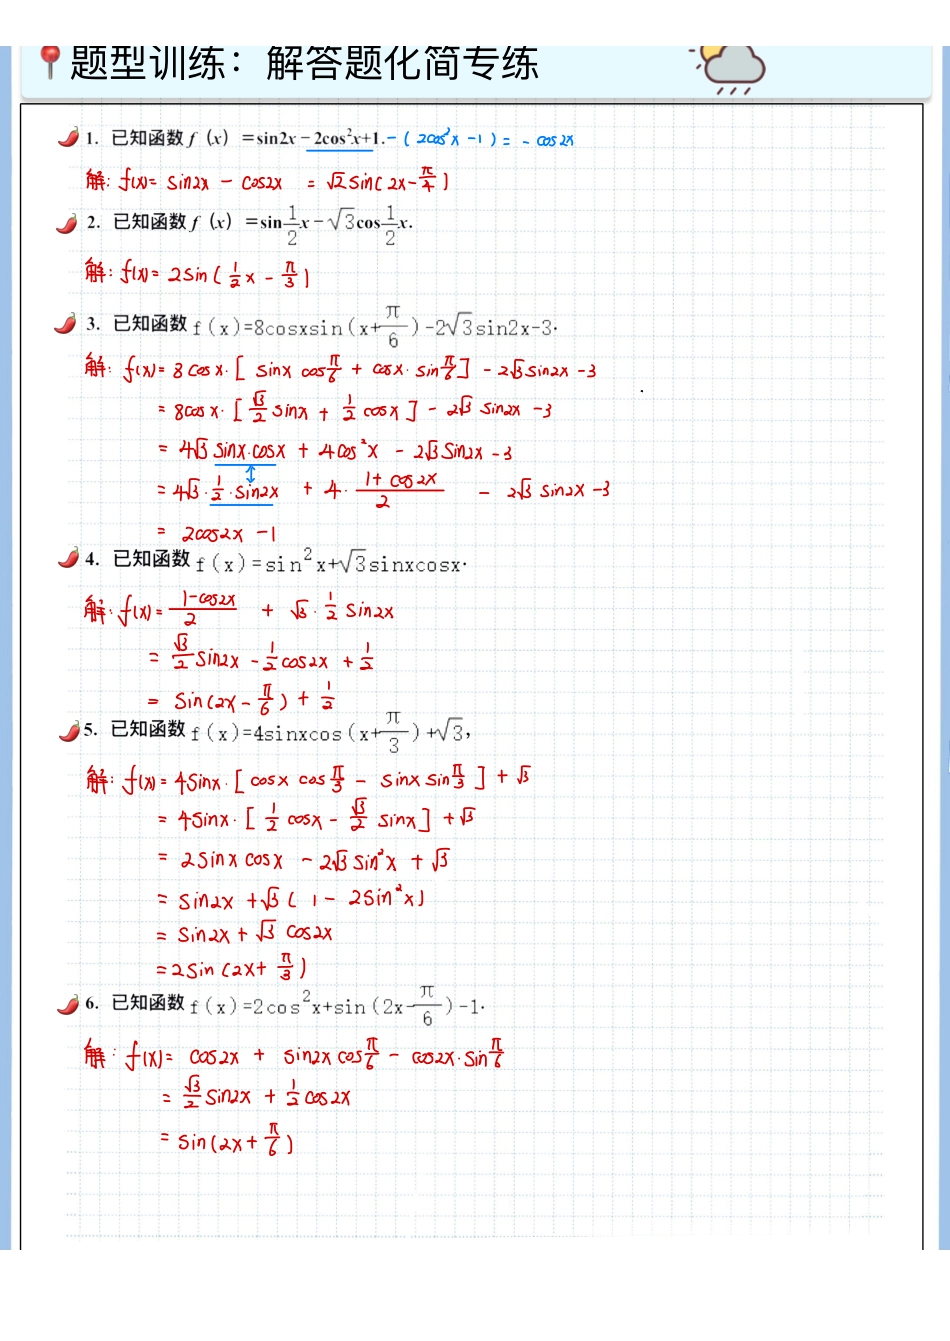 题型训练：解答题化简专练
1. 已知函数 f（x）=sin2x－2cos²x+1. -(2cos²x-1)=-cos2x
解: f(x)= sin2x - cos2x = √2sin(2x-π/4)
2. 已知函数 f（x）=sin1/2x－√3cos1/2x.
解: f(x)= 2sin(1/2x - π/3)
3. 已知函数 f(x)=8cosxsin(x+π/6)-2√3sin2x-3.
解: f(x)= 8cosx·[sinx cosπ/6 + cosx·sinπ/6] - 2√3sin2x -3
= 8cosx·[√3/2 sinx + 1/2 cosx] - 2√3 sin2x -3
= 4√3 sinx·cosx + 4cos²x - 2√3sin2x -3
= 4√3·1/2·sin2x + 4·(1+cos2x)/2 - 2√3 sin2x -3
= 2cos2x -1
4. 已知函数 f(x)=sin²x+√3sinxcosx.
解: f(x)= (1-cos2x)/2 + √3·1/2 sin2x
= √3/2 sin2x - 1/2cos2x + 1/2
= sin(2x-π/6) + 1/2
5. 已知函数 f(x)=4sinxcos(x+π/3)+√3,
解: f(x)= 4sinx·[cosx cosπ/3 - sinx sinπ/3] + √3
= 4sinx·[1/2 cosx - √3/2 sinx] + √3
= 2sinxcosx - 2√3sin²x + √3
= sin2x + √3(1-2sin²x)
= sin2x + √3 cos2x
= 2sin(2x+π/3)
6. 已知函数 f(x)=2cos²x+sin(2x-π/6)-1.
解: f(x)= cos2x + sin2xcosπ/6 - cos2x·sinπ/6
= √3/2 sin2x + 1/2cos2x
= sin(2x+π/6)